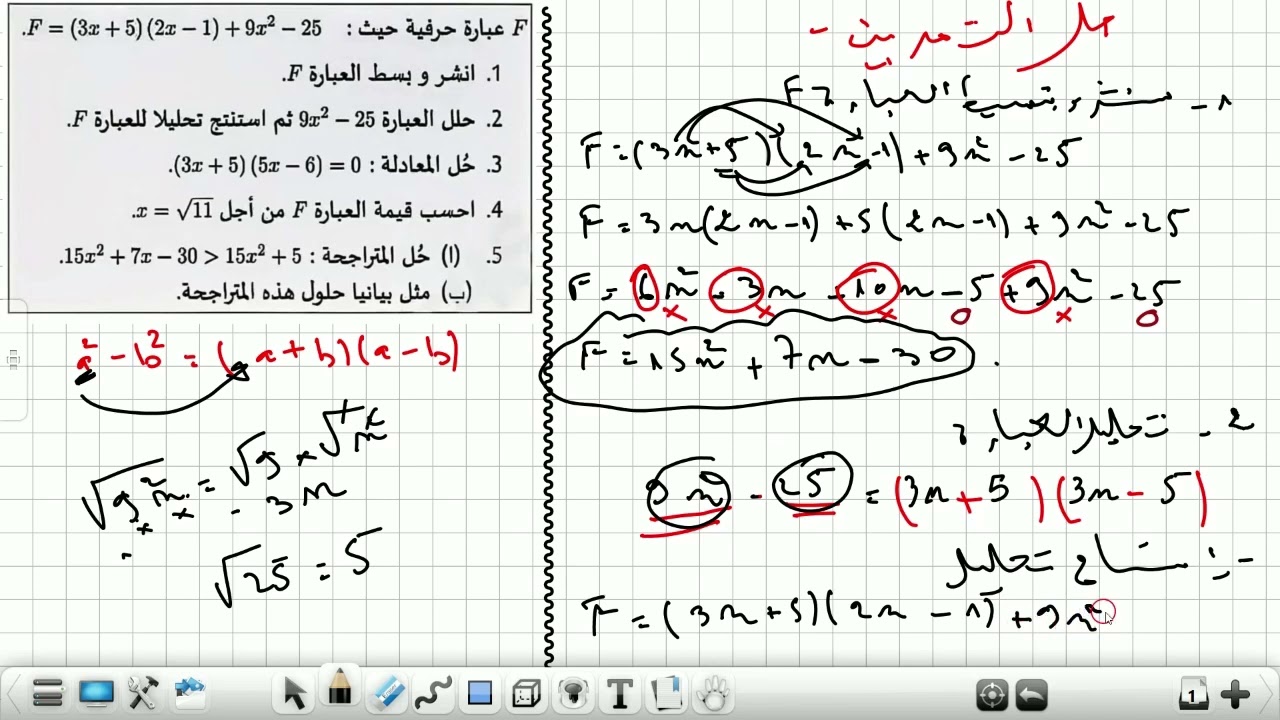 F عبارة حرفية حيث : F = (3x + 5)(2x − 1) + 9x² − 25.
1. انشر و بسط العبارة F.
2. حلل العبارة 9x² − 25 ثم استنتج تحليلا للعبارة F.
3. حُل المعادلة : (3x + 5)(5x − 6) = 0.
4. احسب قيمة العبارة F من أجل x = √11.
5. (ا) حُل المتراجحة : 15x² + 7x − 30 > 15x² + 5.
(ب) مثل بيانيا حلول هذه المتراجحة.
a² - b² = (a+b)(a-b)
√25 = 5
حل التمرين -
F = (3x+5)(2x-1) + 9x² - 25
F = 3x(2x-1) + 5(2x-1) + 9x² - 25
F = 6x² - 3x + 10x - 5 + 9x² - 25
F = 15x² + 7x - 30
2 - تحليل العبارة
9x² - 25 = (3x + 5)(3x - 5)
تحليل
F = (3x+5)(2x - 1) + 9x²
1